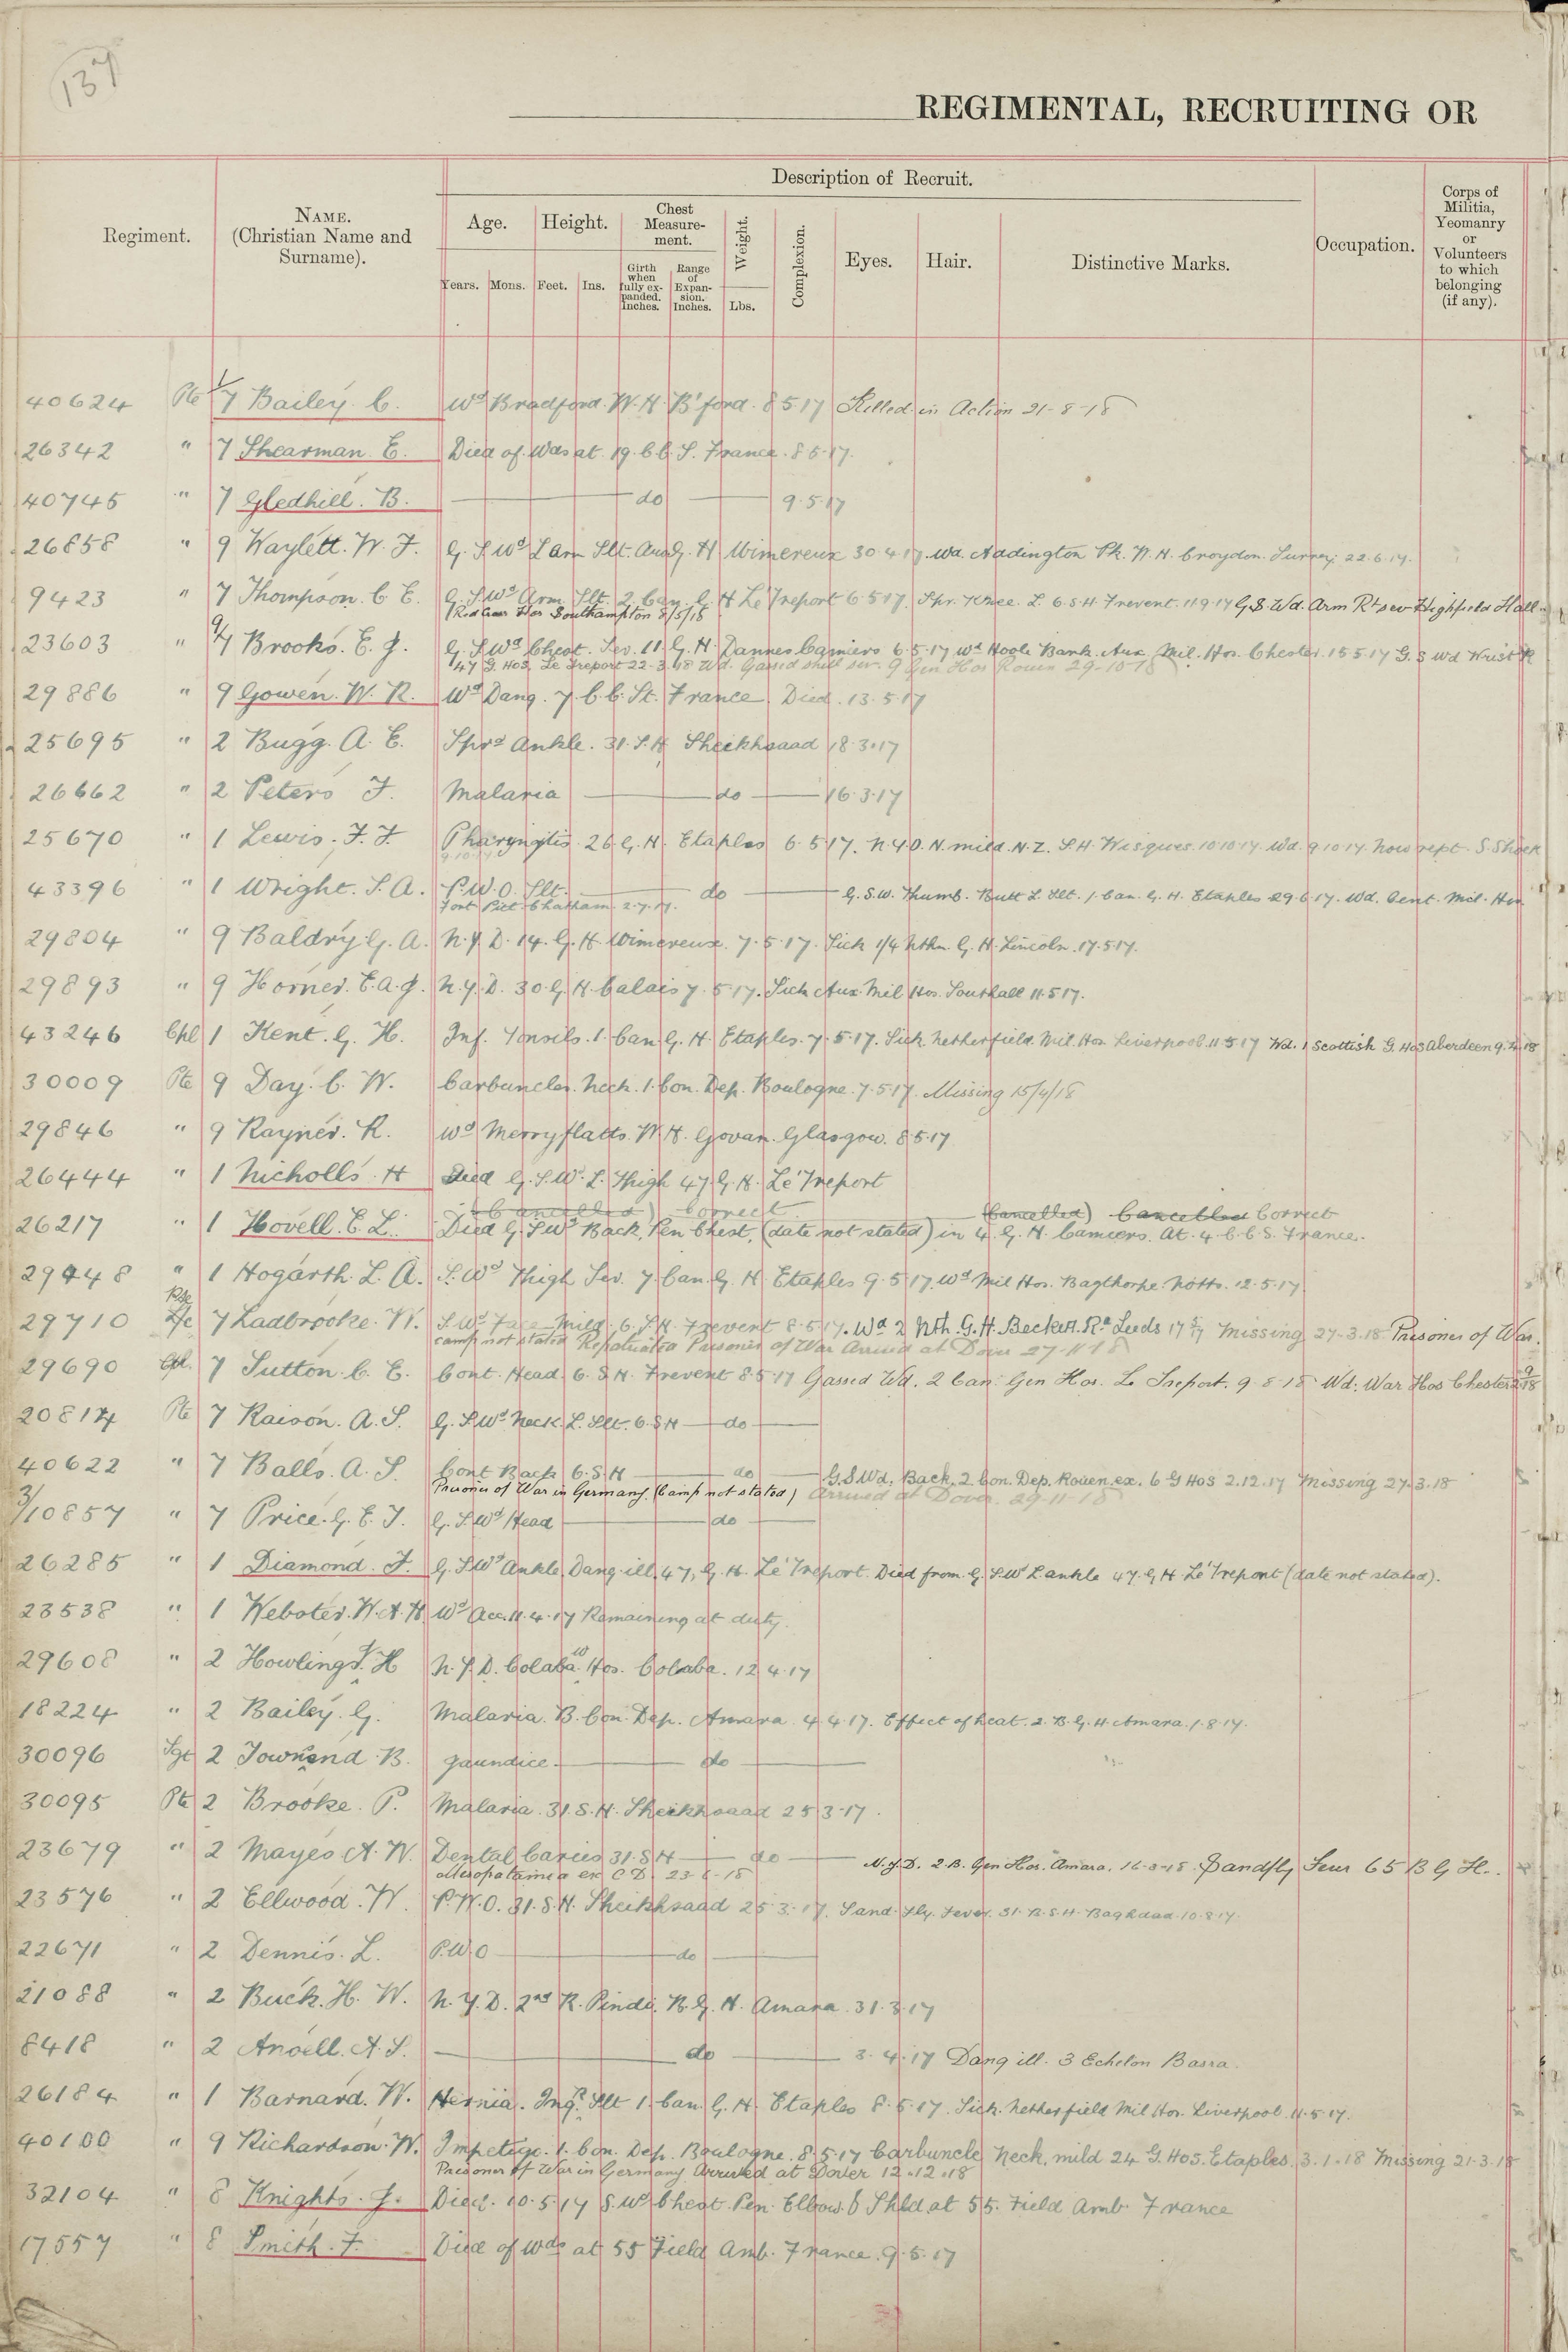 137
REGIMENTAL, RECRUITING OR
Description of Recruit.
Regiment.
NAME.
(Christian Name and
Surname).
Age.
Height.
Chest
Measure-
ment.
Weight.
Complexion.
Eyes.
Hair.
Distinctive Marks.
Occupation.
Corps of
Militia,
Yeomanry
or
Volunteers
to which
belonging
(if any).
Years.
Mons.
Feet.
Ins.
Girth
when
fully ex-
panded.
Inches.
Range
of
Expan-
sion.
Inches.
Lbs.
40624 Pte 7 Bailey. C. Wd Bradford. W.H. B'ford. 8 5 17 Killed in Action 21-8-18
26342 " 7 Shearman. E. Died of Wds at. 19. C.C. S. France. 8 5.17.
40745 " 7 Gledhill. B. do 9.5.17
26858 " 9 Waylett. W. F. G. S. Wd L arm Slt. G. H Wimereux 30 4 17. Wd. Addington Pk. W. H. Croydon. Surrey. 22.6.17.
9423 " 7 Thompson. C. E. G. S. Wd Arm Slt. 2 Can. G. H Le Treport 6 5 17. Spr. Knee. L. 6. S. H. Frevent. 11 9.17 G.S. Wd. Arm Rt sev Highfield Hall
Hos Southampton 8/5/18
23603 " 9/7 Brooks. E. J. G. S. Wd Chest. Sev. 11 G. H. Dannes Camiers 6.5.17 Wd Hoole Bank. Aux. Mil. Hos. Chester. 15 5.17 G. S Wd Wrist R
47 G Hos. Le Treport 22-3-18 Wd. Gassed shell sev. 9 Gen Hos Rouen 29-10-18
29886 " 9 Gowen. W. R. Wd Dang. 7. C. C. St. France. Died. 13.5.17
25695 " 2 Bugg. A. E. Sprd Ankle. 31. S. H. Sheikhsaad 18.3.17
26662 " 2 Peters F. Malaria do 16.3.17
25670 " 1 Lewis. F. F. Pharyngitis. 26. G. H. Etaples 6.5.17. N.Y.D. N. mild. N. Z. S. H. Wisques. 10 10 17. Wd. 9 10 17. Now rept. S. Shock
9-10-17
43396 " 1 Wright. S. A. P.U.O. Slt. do G. S. W. Thumb. Butt L Slt. 1. Can. G. H. Etaples 29.6.17. Wd. Cent. Mil. Hos
Fort Pitt. Chatham. 2.7.17.
29804 " 9 Baldry. G. A. N. Y. D. 14. G. H. Wimereux. 7.5.17. Sick 1/4 Nthn. G. H. Lincoln. 17.5.17.
29893 " 9 Horner. E. A. J. N. Y. D. 30. G. H. Calais 7.5.17. Sick Aux. Mil Hos. Southall 11.5 17.
43246 Cpl 1 Kent. G. H. Inf. Tonsils. 1. Can. G. H. Etaples. 7.5.17. Sick Netherfield. Mil. Hos. Liverpool. 11 5 17 Wd. 1 Scottish G. Hos Aberdeen 9.4.18
30009 Pte 9 Day. C. W. Carbuncles. Neck. 1. Con. Dep. Boulogne. 7.5.17. Missing 15/4/18
29846 " 9 Rayner. R. Wd Merryflatts. W. H. Govan. Glasgow. 8.5.17
26444 " 1 Nicholls. H Died G. S. W. L. Thigh 47. G. H. Le Treport
26217 " 1 Hovell. E. L. (Cancelled) Correct (Cancelled) Cancelled Correct
Died G. S Wd Back, Pen Chest, (date not stated) in 4. G. H. Camiers. At. 4. C. C. S. France.
29448 " 1 Hogarth. L. A. S. Wd Thigh Sev. 7. Can. G. H. Etaples 9.5.17. Wd Mil Hos. Bagthorpe. Notts. 12.5.17
29710 L/c 7 Ladbrooke. W. S. Wd Face Mild. 6. S. H. Frevent 8.5.17. Wd 2 Nth. G. H. Beckett. Rd Leeds 17 5/17 Missing 27-3-18 Prisoner of War.
camp not stated Repatriated Prisoner of War Arrived at Dover 27-11-18
29690 Cpl. 7 Sutton. C. E. Cont. Head. 6. S. H. Frevent 8.5.17 Gassed Wd. 2 Can. Gen Hos. Le Treport. 9-8-18 Wd. War Hos Chester
20814 Pte 7 Raison. A. S. G. S. Wd Neck. L. Slt. 6. S H do
40622 " 7 Balls. A. S. Cont Back 6. S. H do G. S Wd. Back. 2 Con. Dep. Rouen ex. 6 G Hos 2.12.17 Missing 27.3.18
Prisoner of War in Germany. (Camp not stated) Arrived at Dover. 29-11-18
3/10857 " 7 Price. G. E. J. G. S. Wd Head do
26285 " 1 Diamond. F. G. S Wd Ankle. Dang. ill. 47. G. H. Le Treport. Died from G. S. Wd L ankle 47. G. H. Le Treport (date not stated).
23538 " 1 Webster. W. A. H. Wd Acc. 11.4.17 Remaining at duty.
29608 " 2 Howlings. H N. Y. D. Colaba Hos. Colaba. 12.4.17
18224 " 2 Bailey. G. Malaria. B. Con. Dep. Amara. 4.4.17. Effect of heat. 2. B. G. H. Amara. 1.8.17.
30096 Sgt 2 Townsend B. Jaundice. do
30095 Pte 2 Brooke. P. Malaria. 31. S. H. Sheikhsaad 25.3.17.
23679 " 2 Mayes A. W. Dental Caries 31. S H do N. Y. D. 2. B. Gen Hos. Amara. 16-3-18. Sandfly Fever 65 B G H.
Mesopotamia ex C D. 23-6-18
23576 " 2 Ellwood. W. P. U. O. 31. S. H. Sheikhsaad 25.3.17. Sand. Fly. Fever. 31. B. S. H. Baghdad. 10.8.17.
22671 " 2 Dennis. L. P.U.O do
21088 " 2 Buck. H. W. N. Y. D. 2nd R. Pindi. B. G. H. Amara. 31.3.17
8418 " 2 Ansell. A. S. do 3.4.17 Dang ill. 3 Echelon Basra.
26184 " 1 Barnard. W. Hernia. Ing. Slt 1. Can. G. H. Etaples 8.5.17. Sick. Netherfield Mil Hos. Liverpool. 11.5.17.
40100 " 9 Richardson. W. Impetigo. 1. Con. Dep. Boulogne. 8.5.17 Carbuncle Neck, mild 24 G. Hos. Etaples. 3.1.18 Missing 21.3.18
Prisoner of War in Germany Arrived at Dover 12.12.18
32104 " 8 Knights. J. Died. 10.5.17 S. Wd Chest. Pen. Elbow. & Shld at 55. Field Amb. France
17557 " 8 Smith. F. Died of Wds at 55 Field Amb. France. 9.5.17